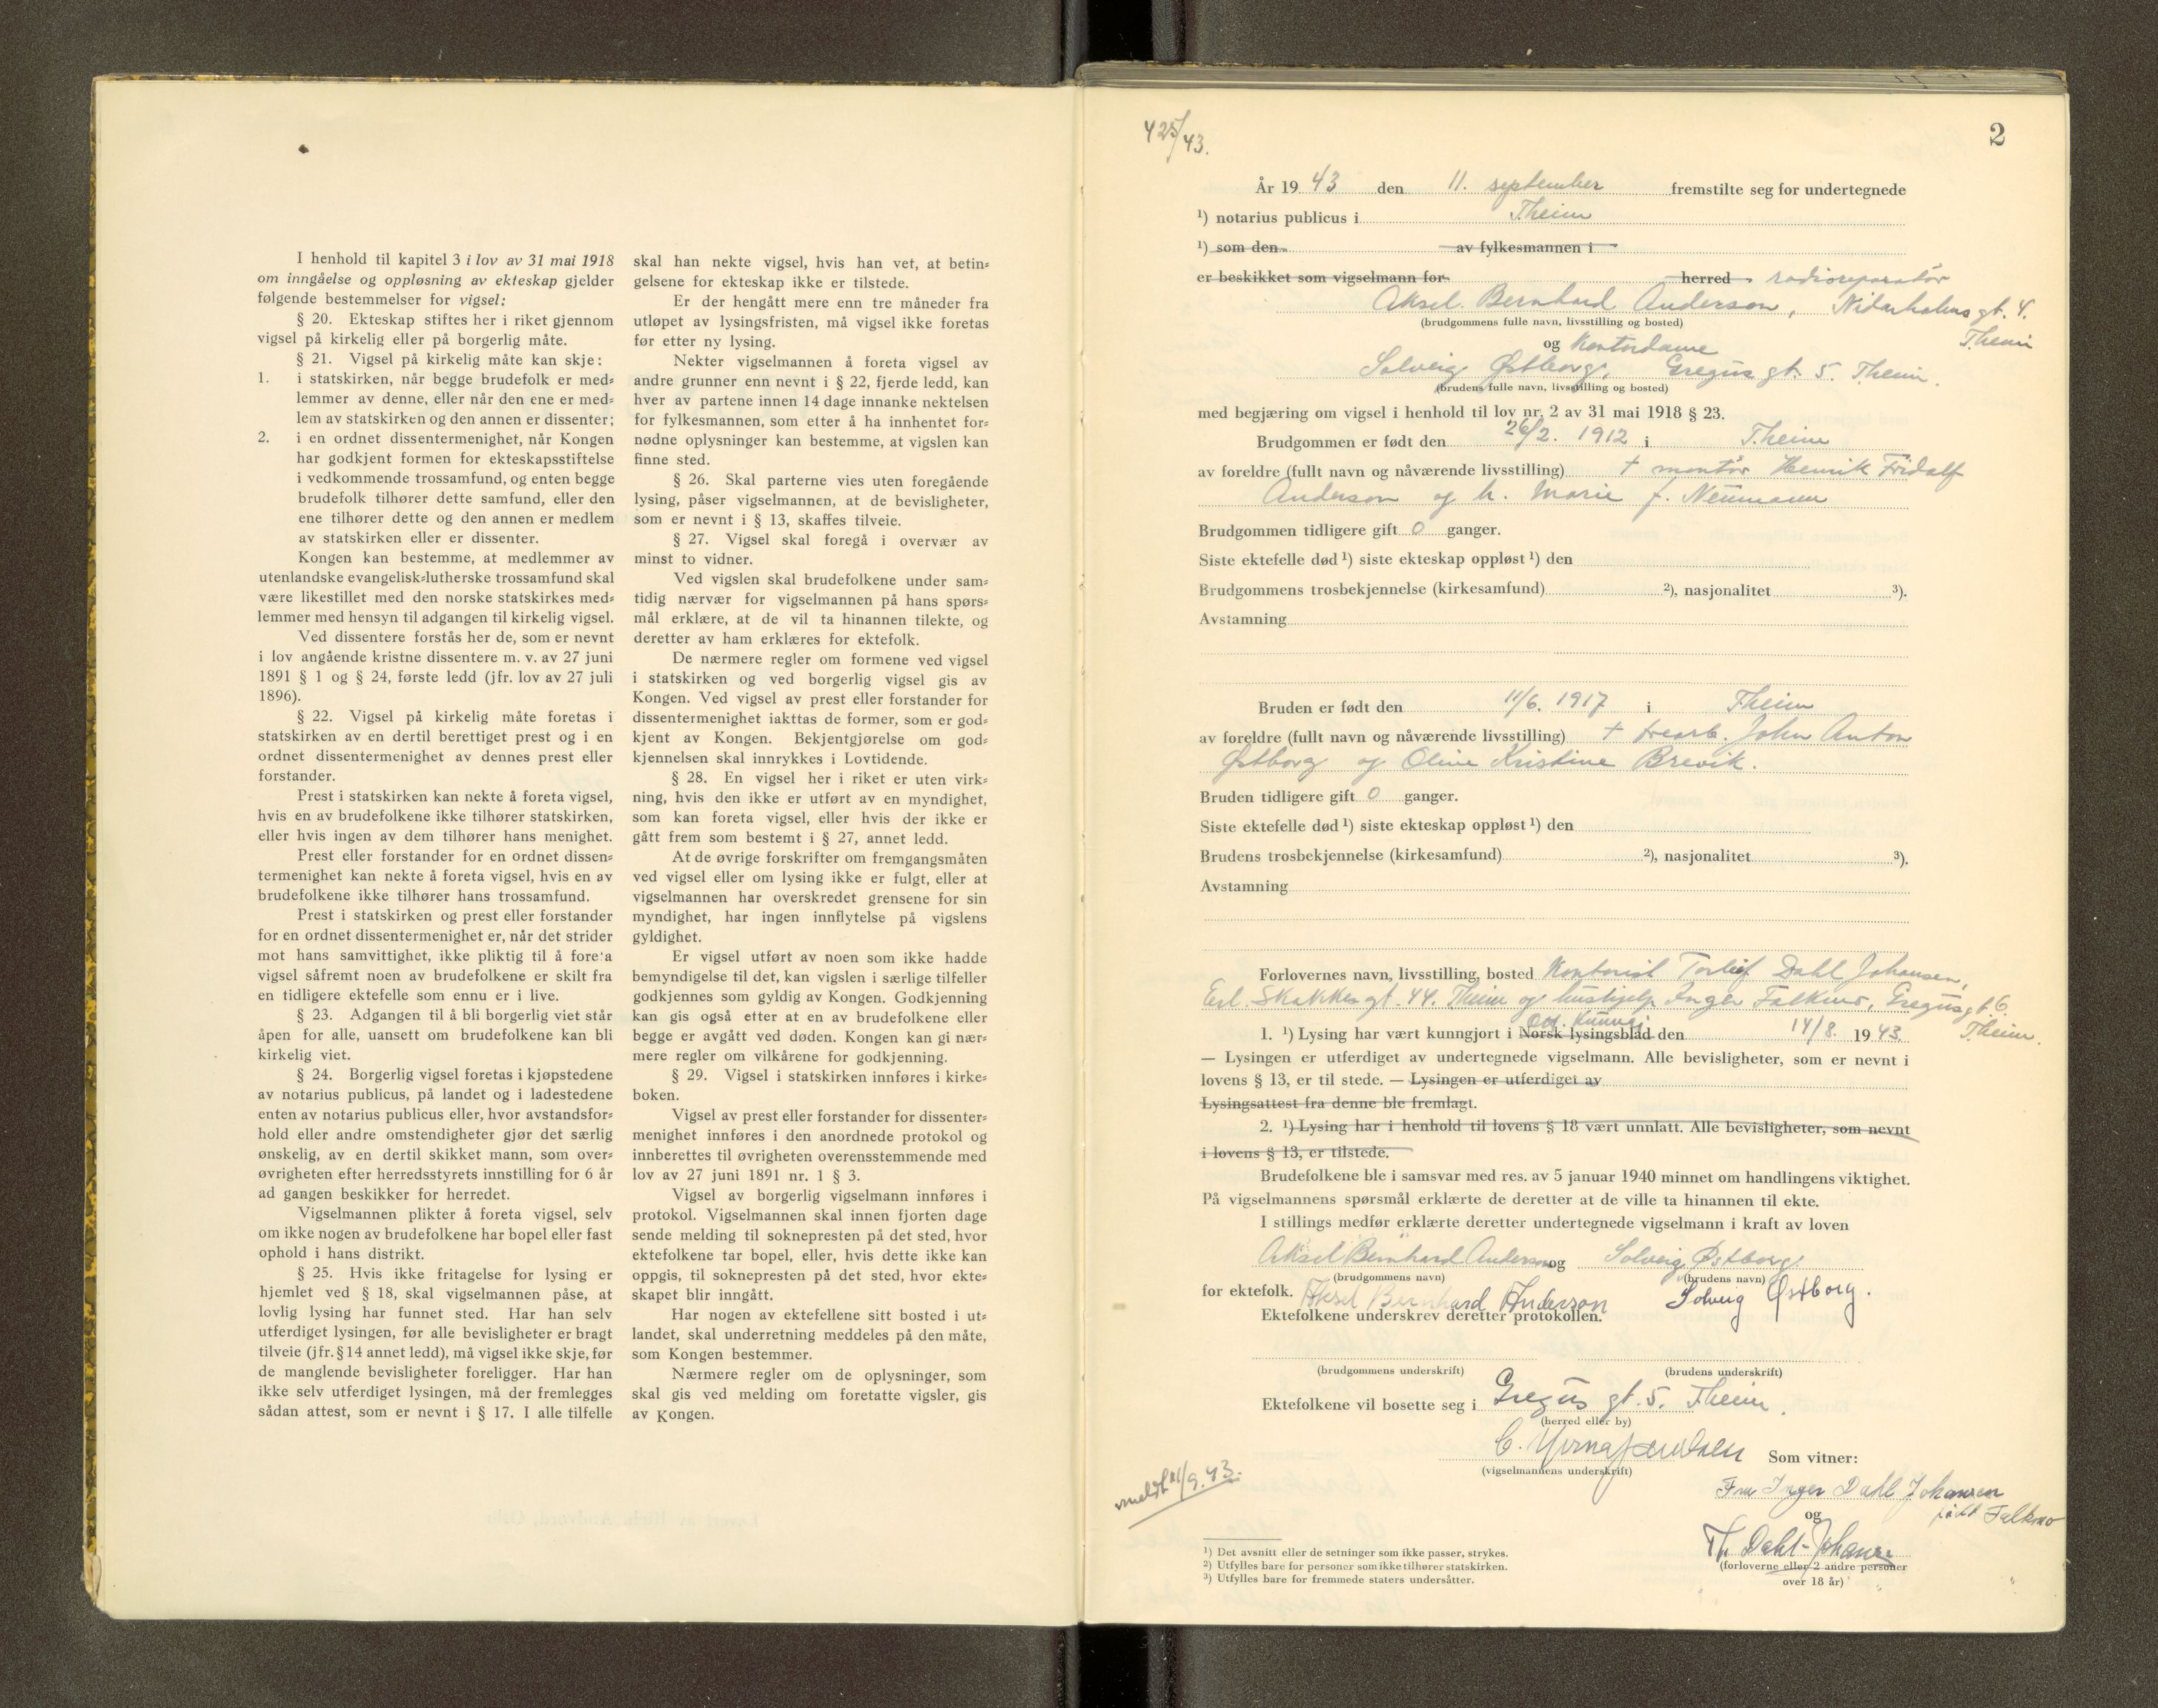 I henhold til kapitel 3 i lov av 31 mai 1918
om inngåelse og oppløsning av ekteskap gjelder
følgende bestemmelser for vigsel:
§ 20. Ekteskap stiftes her i riket gjennom
vigsel på kirkelig eller på borgerlig måte.
§ 21. Vigsel på kirkelig måte kan skje:
1. i statskirken, når begge brudefolk er med-
lemmer av denne, eller når den ene er med-
lem av statskirken og den annen er dissenter;
2. i en ordnet dissentermenighet, når Kongen
har godkjent formen for ekteskapsstiftelse
i vedkommende trossamfund, og enten begge
brudefolk tilhører dette samfund, eller den
ene tilhører dette og den annen er medlem
av statskirken eller er dissenter.
Kongen kan bestemme, at medlemmer av
utenlandske evangelisk-lutherske trossamfund skal
være likestillet med den norske statskirkes med-
lemmer med hensyn til adgangen til kirkelig vigsel.
Ved dissentere forstås her de, som er nevnt
i lov angående kristne dissentere m. v. av 27 juni
1891 § 1 og § 24, første ledd (jfr. lov av 27 juli
1896).
§ 22. Vigsel på kirkelig måte foretas i
statskirken av en dertil berettiget prest og i en
ordnet dissentermenighet av dennes prest eller
forstander.
Prest i statskirken kan nekte å foreta vigsel,
hvis en av brudefolkene ikke tilhører statskirken,
eller hvis ingen av dem tilhører hans menighet.
Prest eller forstander for en ordnet dissen-
termenighet kan nekte å foreta vigsel, hvis en av
brudefolkene ikke tilhører hans trossamfund.
Prest i statskirken og prest eller forstander
for en ordnet dissentermenighet er, når det strider
mot hans samvittighet, ikke pliktig til å fore'a
vigsel såfremt noen av brudefolkene er skilt fra
en tidligere ektefelle som ennu er i live.
§ 23. Adgangen til å bli borgerlig viet står
åpen for alle, uansett om brudefolkene kan bli
kirkelig viet.
§ 24. Borgerlig vigsel foretas i kjøpstedene
av notarius publicus, på landet og i ladestedene
enten av notarius publicus eller, hvor avstandsfor-
hold eller andre omstendigheter gjør det særlig
ønskelig, av en dertil skikket mann, som over-
øvrigheten efter herredsstyrets innstilling for 6 år
ad gangen beskikker for herredet.
Vigselmannen plikter å foreta vigsel, selv
om ikke nogen av brudefolkene har bopel eller fast
ophold i hans distrikt.
§ 25. Hvis ikke fritagelse for lysing er
hjemlet ved § 18, skal vigselmannen påse, at
lovlig lysing har funnet sted. Har han selv
utferdiget lysingen, før alle bevisligheter er bragt
tilveie (jfr. § 14 annet ledd), må vigsel ikke skje, før
de manglende bevisligheter foreligger. Har han
ikke selv utferdiget lysingen, må der fremlegges
sådan attest, som er nevnt i § 17. I alle tilfelle
skal han nekte vigsel, hvis han vet, at betin-
gelsene for ekteskap ikke er tilstede.
Er der hengått mere enn tre måneder fra
utløpet av lysingsfristen, må vigsel ikke foretas
før etter ny lysing.
Nekter vigselmannen å foreta vigsel av
andre grunner enn nevnt i § 22, fjerde ledd, kan
hver av partene innen 14 dage innanke nektelsen
for fylkesmannen, som etter å ha innhentet for-
nødne oplysninger kan bestemme, at vigslen kan
finne sted.
§ 26. Skal parterne vies uten foregående
lysing, påser vigselmannen, at de bevisligheter,
som er nevnt i § 13, skaffes tilveie.
§ 27. Vigsel skal foregå i overvær av
minst to vidner.
Ved vigslen skal brudefolkene under sam-
tidig nærvær for vigselmannen på hans spørs-
mål erklære, at de vil ta hinannen tilekte, og
deretter av ham erklæres for ektefolk.
De nærmere regler om formene ved vigsel
i statskirken og ved borgerlig vigsel gis av
Kongen. Ved vigsel av prest eller forstander for
dissentermenighet iakttas de former, som er god-
kjent av Kongen. Bekjentgjørelse om god-
kjennelsen skal innrykkes i Lovtidende.
§ 28. En vigsel her i riket er uten virk-
ning, hvis den ikke er utført av en myndighet,
som kan foreta vigsel, eller hvis der ikke er
gått frem som bestemt i § 27, annet ledd.
At de øvrige forskrifter om fremgangsmåten
ved vigsel eller om lysing ikke er fulgt, eller at
vigselmannen har overskredet grensene for sin
myndighet, har ingen innflytelse på vigslens
gyldighet.
Er vigsel utført av noen som ikke hadde
bemyndigelse til det, kan vigslen i særlige tilfeller
godkjennes som gyldig av Kongen. Godkjenning
kan gis også etter at en av brudefolkene eller
begge er avgått ved døden. Kongen kan gi nær-
mere regler om vilkårene for godkjenning.
§ 29. Vigsel i statskirken innføres i kirke-
boken.
Vigsel av prest eller forstander for dissenter-
menighet innføres i den anordnede protokol og
innberettes til øvrigheten overensstemmende med
lov av 27 juni 1891 nr. 1 § 3.
Vigsel av borgerlig vigselmann innføres i
protokol. Vigselmannen skal innen fjorten dage
sende melding til soknepresten på det sted, hvor
ektefolkene tar bopel, eller, hvis dette ikke kan
oppgis, til soknepresten på det sted, hvor ekte-
skapet blir inngått.
Har nogen av ektefellene sitt bosted i ut-
landet, skal underretning meddeles på den måte,
som Kongen bestemmer.
Nærmere regler om de oplysninger, som
skal gis ved melding om foretatte vigsler, gis
av Kongen.
425/43.
2
År 1943 den 11. september fremstilte seg for undertegnede
1) notarius publicus i T.heim
1) som den av fylkesmannen i
er beskikket som vigselmann for herred radioreparatör
Aksel Bernhard Anderson, Nidarholms gt. 4.
(brudgommens fulle navn, livsstilling og bosted) T.heim
og Kontordame
Solveig Østborg, Gregus gt. 5. T.heim.
(brudens fulle navn, livsstilling og bosted)
med begjæring om vigsel i henhold til lov nr. 2 av 31 mai 1918 § 23.
Brudgommen er født den 26/2. 1912 i T.heim
av foreldre (fullt navn og nåværende livsstilling) † montör Henrik Fridolf
Anderson og h. Marie f. Neumann
Brudgommen tidligere gift 0 ganger.
Siste ektefelle død 1) siste ekteskap oppløst 1) den
Brudgommens trosbekjennelse (kirkesamfund) 2), nasjonalitet 3).
Avstamning
Bruden er født den 11/6. 1917 i T.heim
av foreldre (fullt navn og nåværende livsstilling) † trearb. John Anton
Østborg og Oline Kristine Brevik.
Bruden tidligere gift 0 ganger.
Siste ektefelle død 1) siste ekteskap oppløst 1) den
Brudens trosbekjennelse (kirkesamfund) 2), nasjonalitet 3).
Avstamning
Forlovernes navn, livsstilling, bosted Kontorist Torleif Dahl Johansen,
Erl. Skakkes gt. 44. T.heim og hushjelp Inger Falkmo, Gregus gt. 6.
T.heim.
Off. Kunngj.
1. 1) Lysing har vært kunngjort i Norsk lysingsblad den 14/8. 1943.
— Lysingen er utferdiget av undertegnede vigselmann. Alle bevisligheter, som er nevnt i
lovens § 13, er til stede. — Lysingen er utferdiget av
Lysingsattest fra denne ble fremlagt.
2. 1) Lysing har i henhold til lovens § 18 vært unnlatt. Alle bevisligheter, som nevnt
i lovens § 13, er tilstede.
Brudefolkene ble i samsvar med res. av 5 januar 1940 minnet om handlingens viktighet.
På vigselmannens spørsmål erklærte de deretter at de ville ta hinannen til ekte.
I stillings medfør erklærte deretter undertegnede vigselmann i kraft av loven
Aksel Bernhard Anderson og Solveig Østborg
(brudgommens navn) (brudens navn)
for ektefolk. Aksel Bernhard Anderson Solveig Østborg.
Ektefolkene underskrev deretter protokollen.
(brudgommens underskrift) (brudens underskrift)
Ektefolkene vil bosette seg i Gregus gt. 5. T.heim.
(herred eller by)
C.
(vigselmannens underskrift)
Som vitner:
meldt 11/9.43.
Fru Inger Dahl Johansen
født Falkmo
og
Th. Dahl-Johansen
(forloverne eller 2 andre personer
over 18 år)
1) Det avsnitt eller de setninger som ikke passer, strykes.
2) Utfylles bare for personer som ikke tilhører statskirken.
3) Utfylles bare for fremmede staters undersåtter.